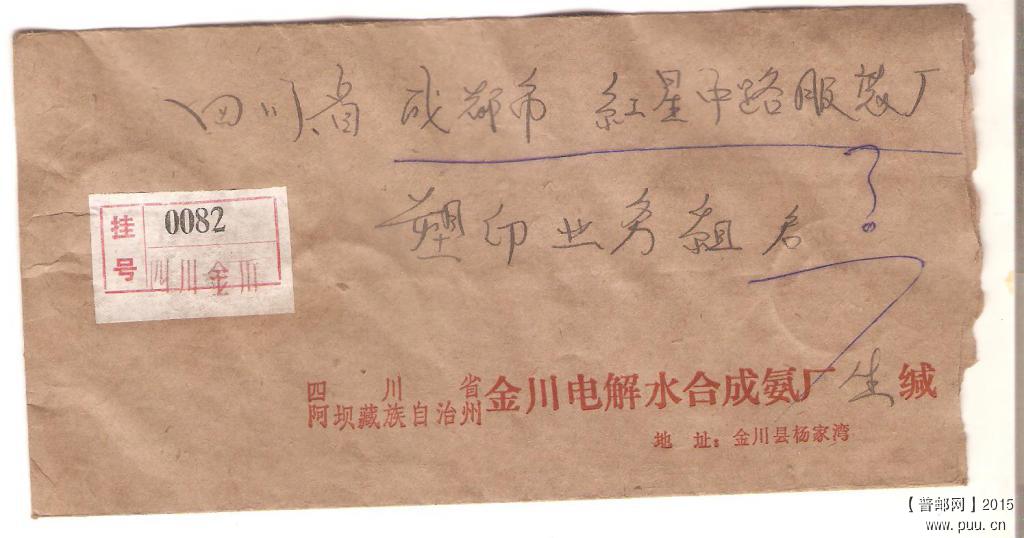 四川省 成都市 红星中路服装厂
塑印业务组
?
挂号 0082
四川金川
四川省
阿坝藏族自治州 金川电解水合成氨厂 生 缄
地 址：金川县杨家湾
【普邮网】2015
www.puu.cn